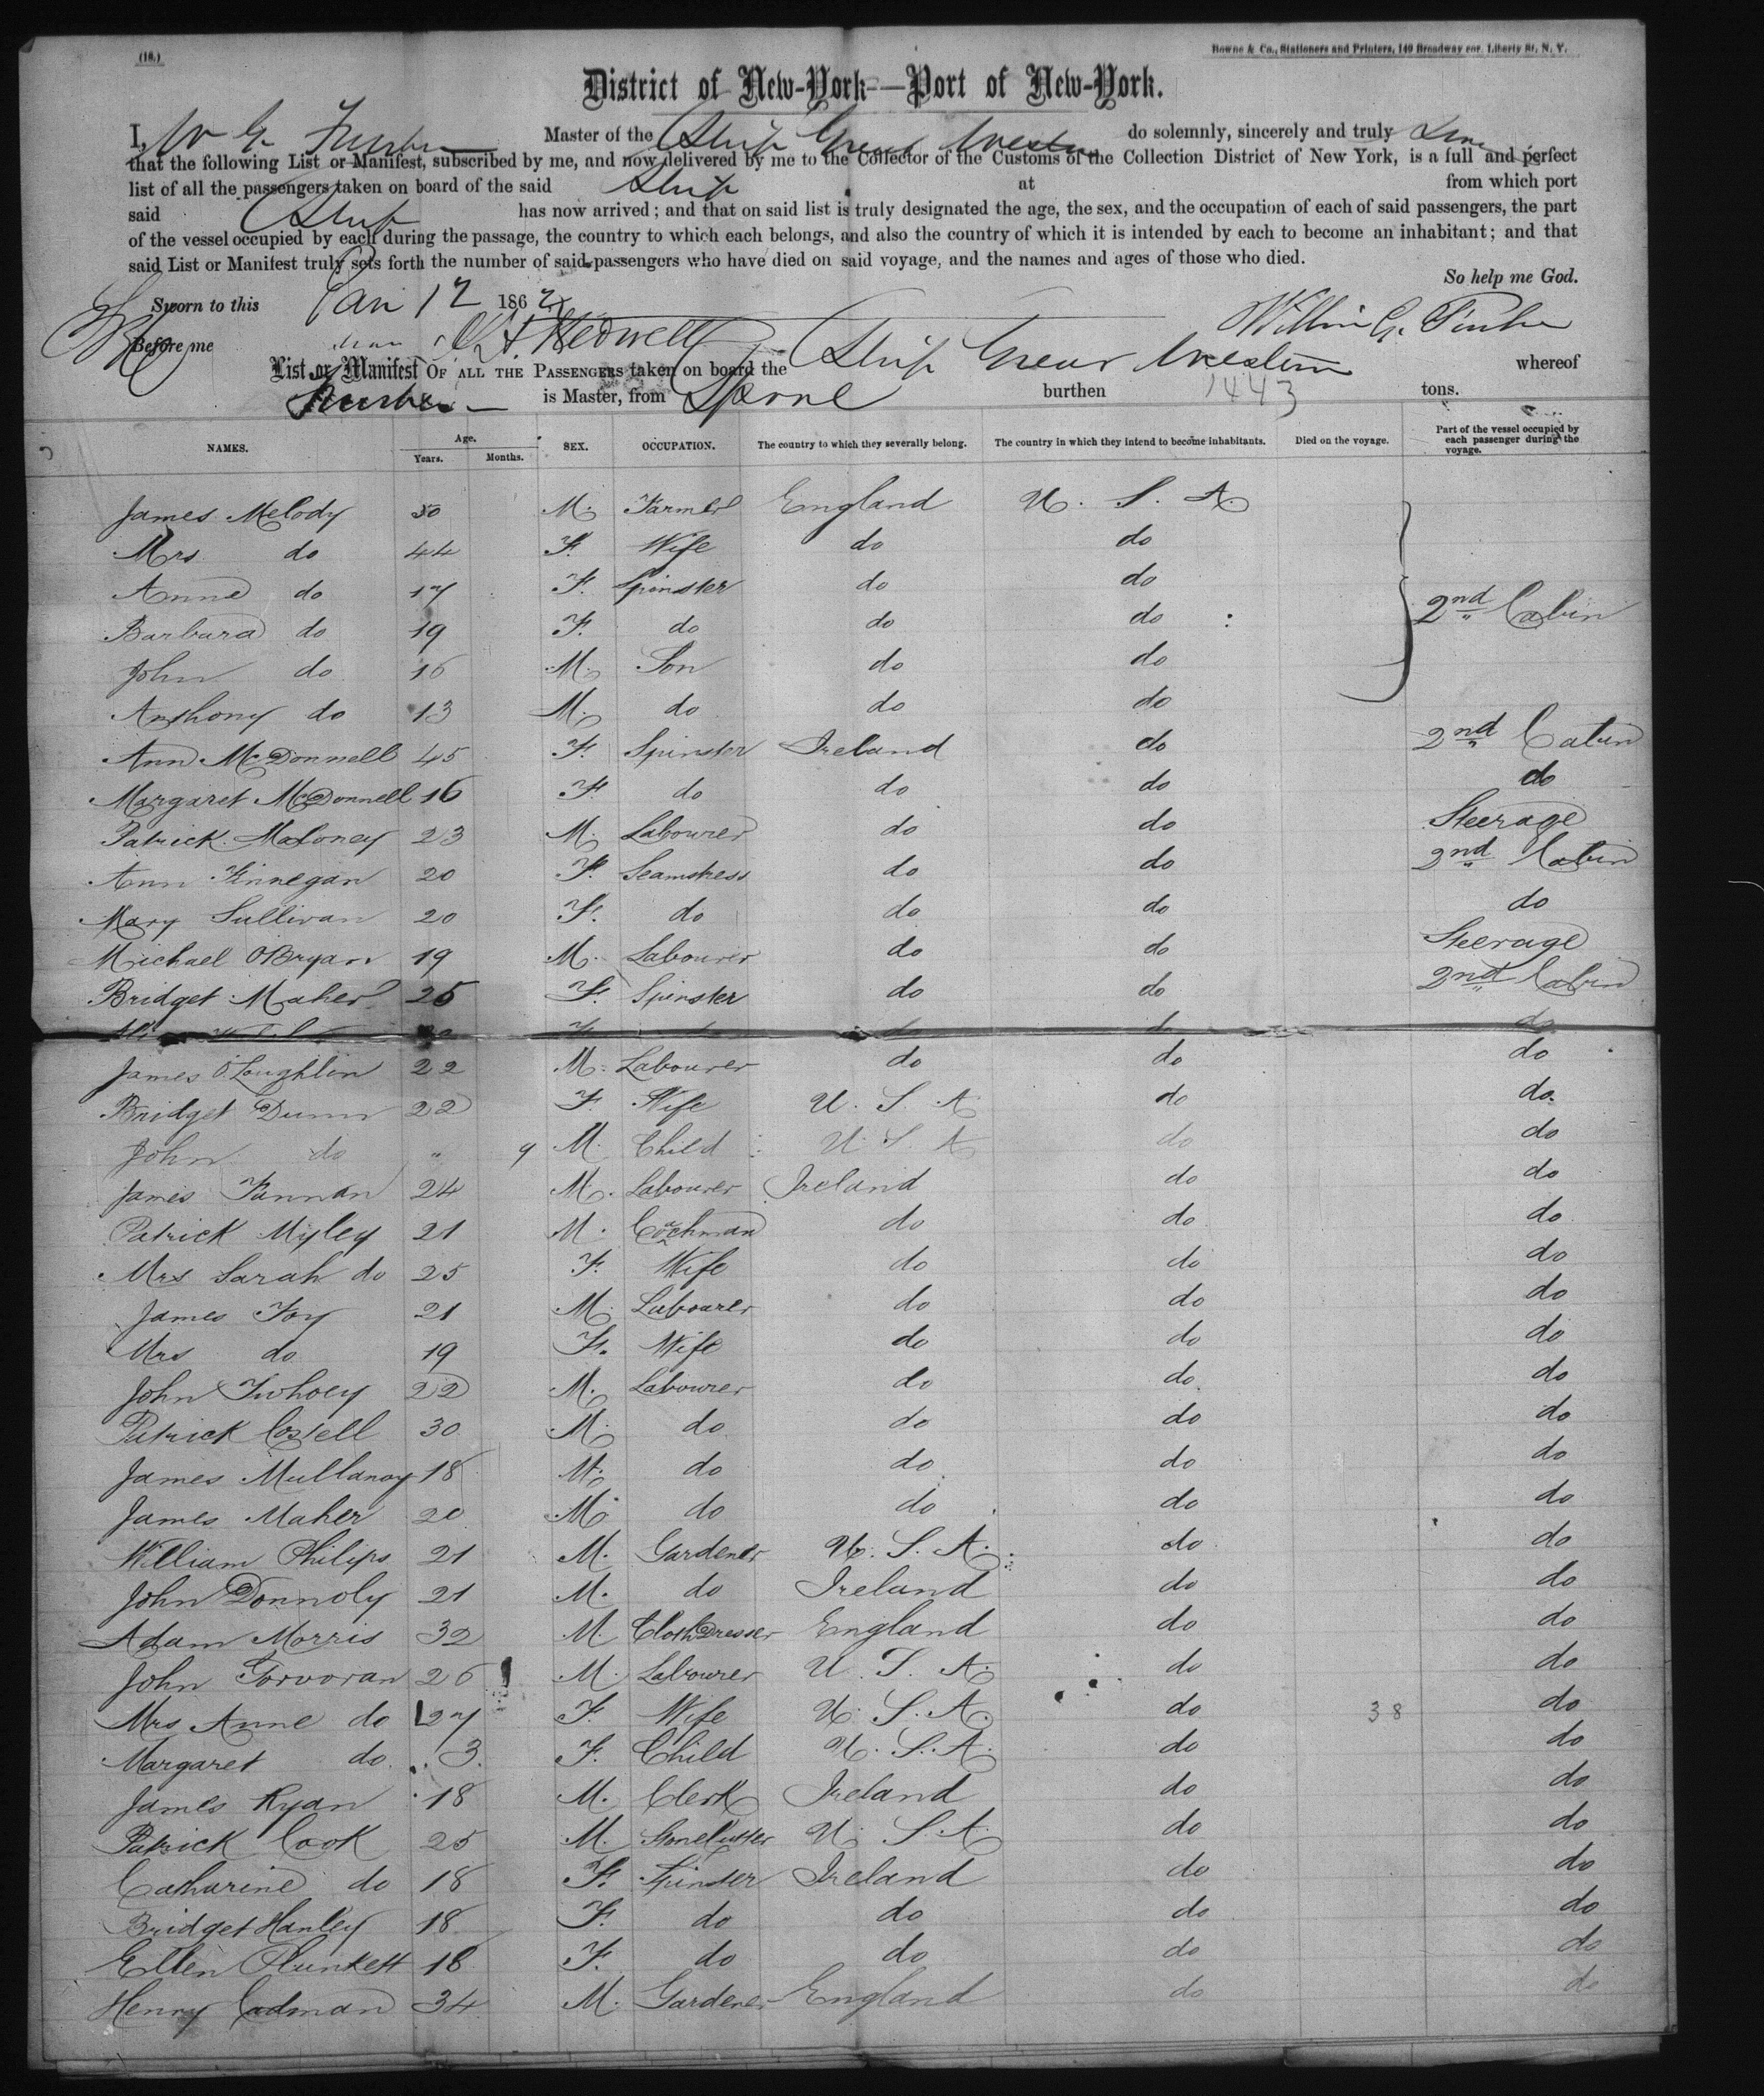 (16.)
Bowne & Co., Stationers and Printers, 149 Broadway cor. Liberty St, N. Y.
District of New-York—Port of New-York.
I, W G Furber Master of the Ship Great Western do solemnly, sincerely and truly
that the following List or Manifest, subscribed by me, and now delivered by me to the Collector of the Customs of the Collection District of New York, is a full and perfect
list of all the passengers taken on board of the said Ship at from which port
said Ship has now arrived; and that on said list is truly designated the age, the sex, and the occupation of each of said passengers, the part
of the vessel occupied by each during the passage, the country to which each belongs, and also the country of which it is intended by each to become an inhabitant; and that
said List or Manifest truly sets forth the number of said passengers who have died on said voyage, and the names and ages of those who died.
So help me God.
Sworn to this Jan 12 1862
Before me
List or Manifest OF ALL THE PASSENGERS taken on board the Ship Great Western whereof
Furber is Master, from burthen 1443 tons.
NAMES. Age. Years. Months. SEX. OCCUPATION. The country to which they severally belong. The country in which they intend to become inhabitants. Died on the voyage. Part of the vessel occupied by each passenger during the voyage.
James Melody 50 M. Farmer England U. S. A.
Mrs do 44 F. Wife do do
Anne do 17 F. Spinster do do
Barbara do 19 F. do do do 2nd Cabin
John do 16 M. Son do do
Anthony do 13 M. do do do
Ann McDonnell 45 F. Spinster Ireland do 2nd Cabin
Margaret McDonnell 16 F. do do do do
Patrick Moloney 23 M. Labourer do do Steerage
Ann Finnegan 20 F. Seamstress do do 2nd Cabin
Mary Sullivan 20 F. do do do do
Michael OBryan 19 M. Labourer do do Steerage
Bridget Maher 25 F. Spinster do do 2nd Cabin
do do do
James O'Loughlin 22 M. Labourer do do do
Bridget Dunn 22 F. Wife U. S. A do do.
John do " 9 M. Child U. S. A do do
James Fannan 24 M. Labourer Ireland do do
Patrick Myley 21 M. Coachman do do do
Mrs Sarah do 25 F. Wife do do do
James Foy 21 M. Labourer do do do
Mrs do 19 F. Wife do do do
John Twhoey 22 M. Labourer do do do
Patrick Costell 30 M. do do do do
James Mullanay 18 M. do do do do
James Maher 20 M. do do do do
William Philips 21 M. Gardener U. S. A. do do
John Donnoly 21 M. do Ireland do do
Adam Morris 32 M. Cloth Dresser England do do
John Gorvoran 26 M. Labourer U. S. A. do do
Mrs Anne do 27 F. Wife U. S. A. do 38 do
Margaret do 3. F. Child U. S. A. do do
James Ryan 18 M. Clerk Ireland do do
Patrick Cook 25 M. StoneCutter U. S. A. do do
Catharine do 18 F. Spinster Ireland do do
Bridget Hanley 18 F. do do do do
Ellen Plunkett 18 F. do do do do
Henry Cadman 34 M. Gardener England do do